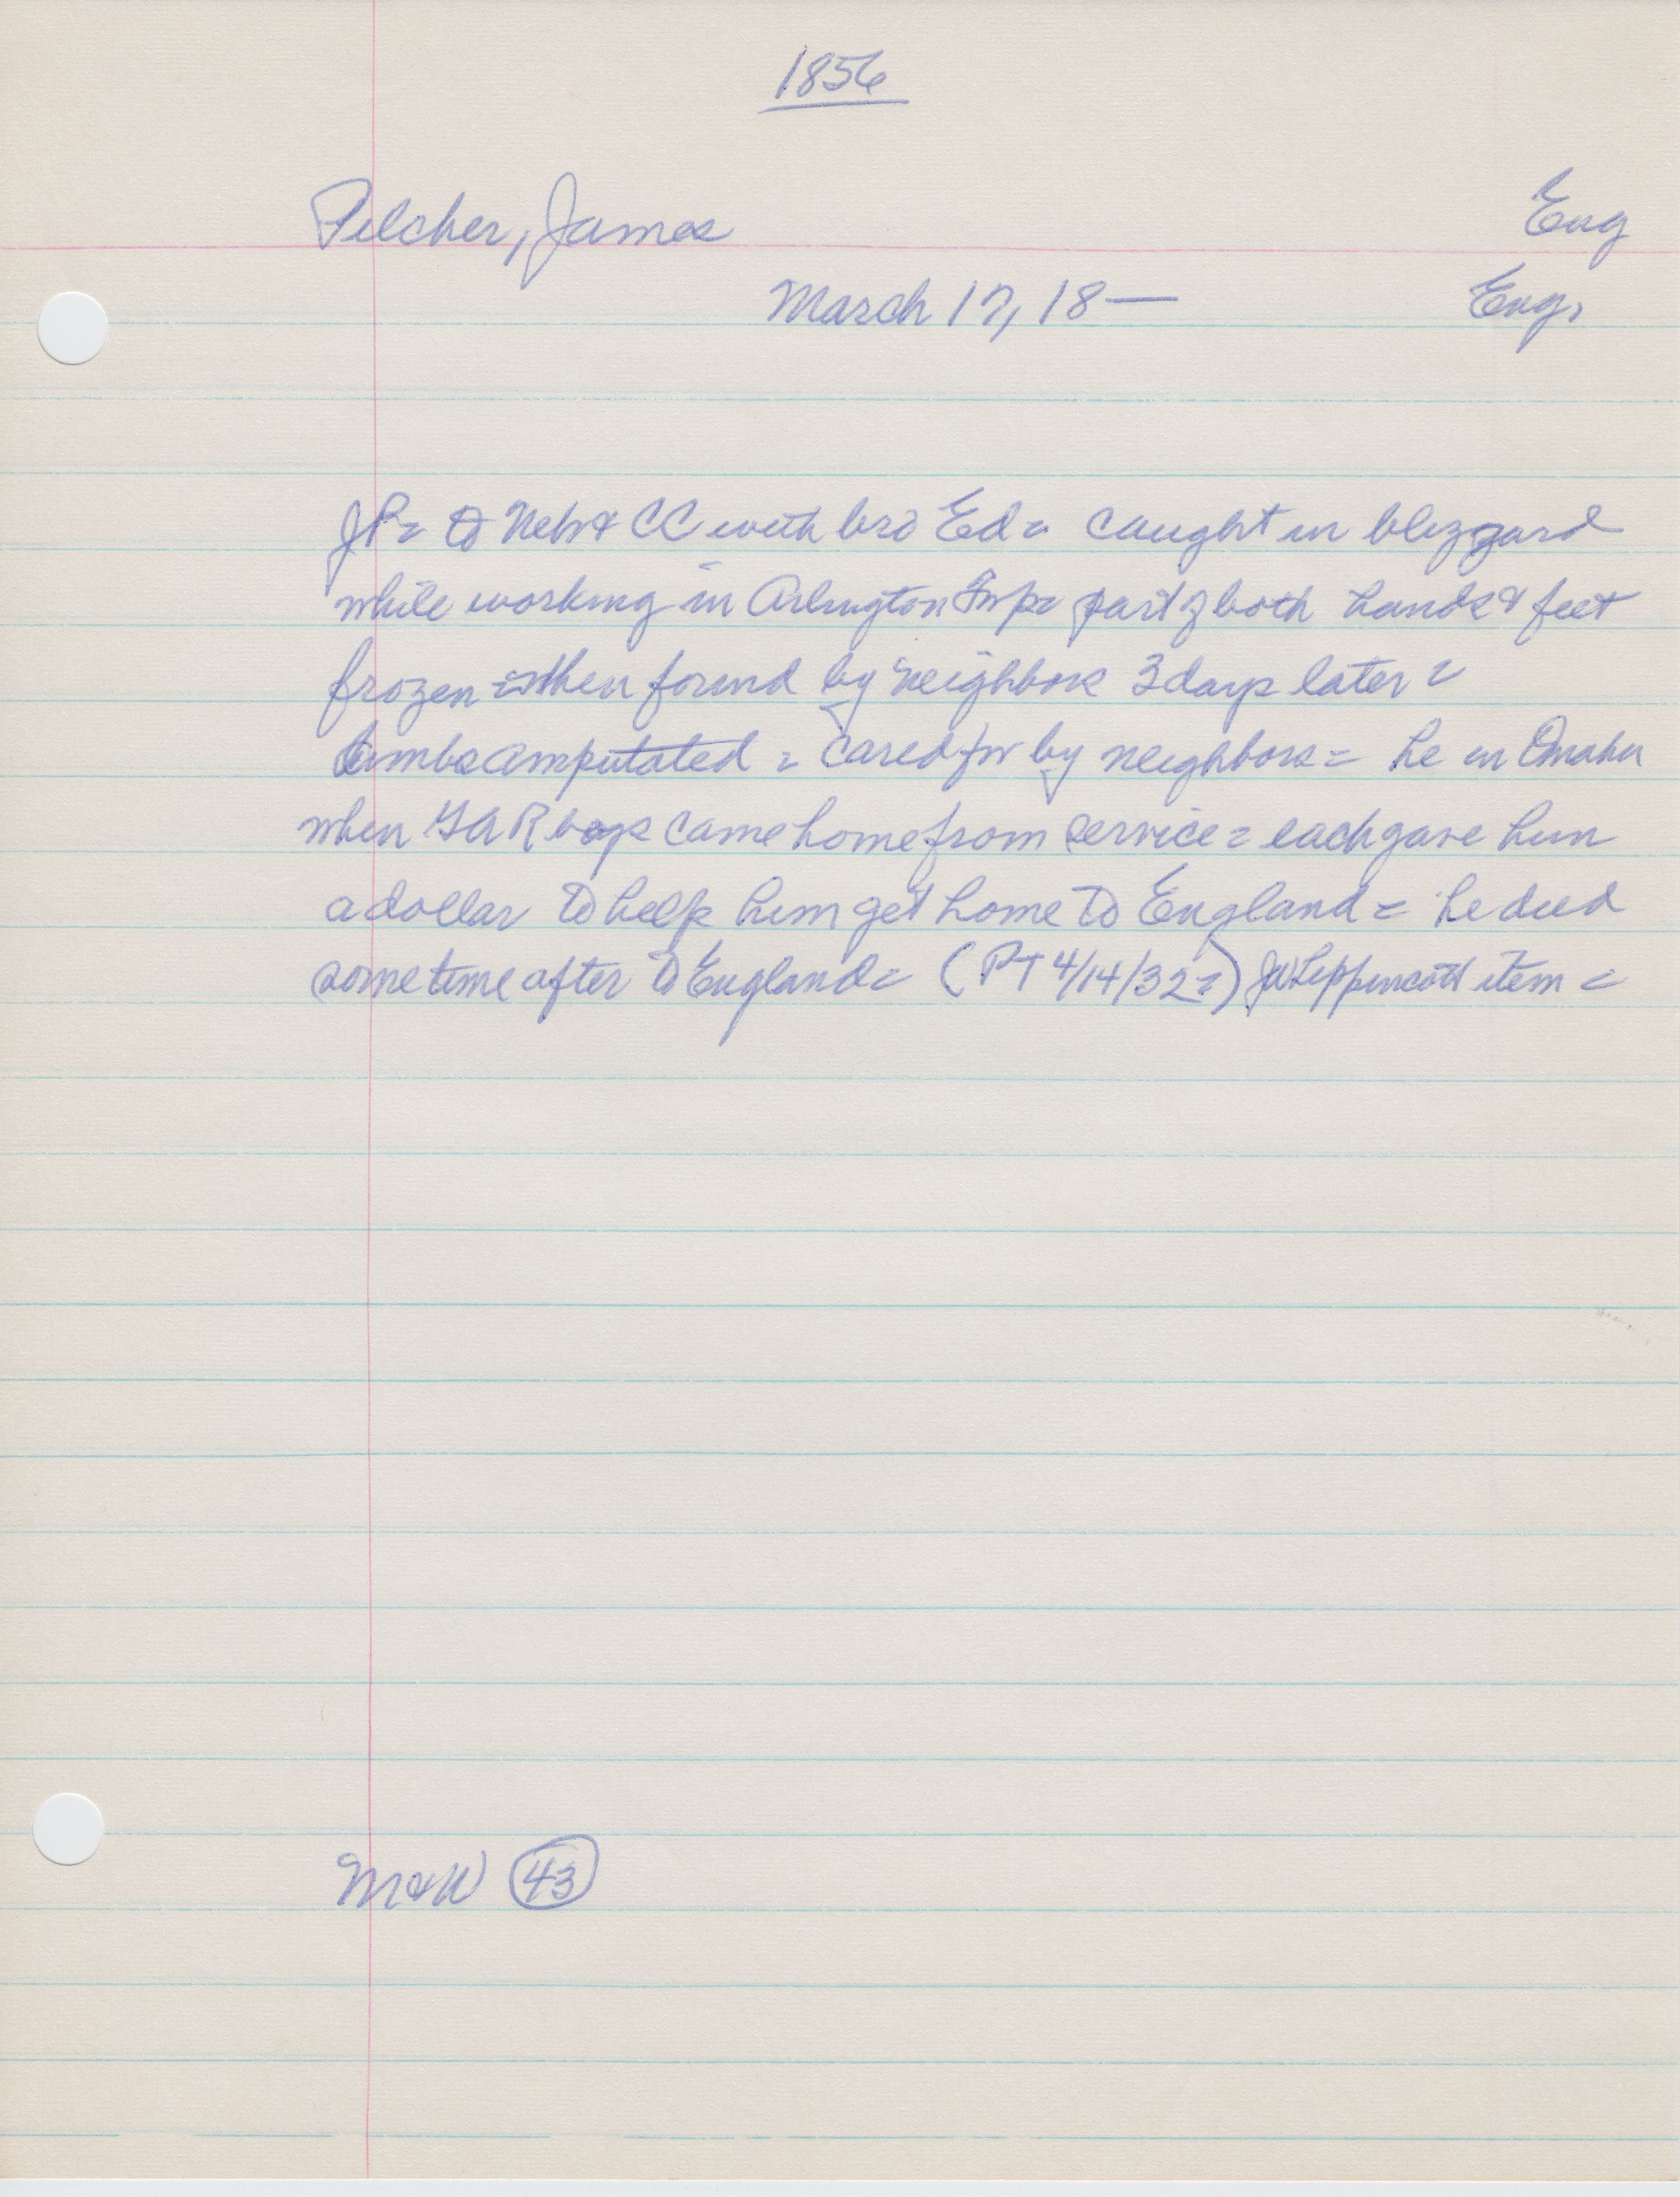 1856
Pilcher, James Eng
March 17, 18— Eng.
JP= to Neb & CC with bro Ed= caught in blizzard
while working in Arlington Twp= part of both hands & feet
frozen = when found by neighbors 3 days later =
limbs amputated = cared for by neighbors = he in Omaha
when GAR boys came home from service = each gave him
a dollar to help him get home to England = he died
sometime after to England= (PT 4/14/32=) JW Lippincott item =
M&W 43